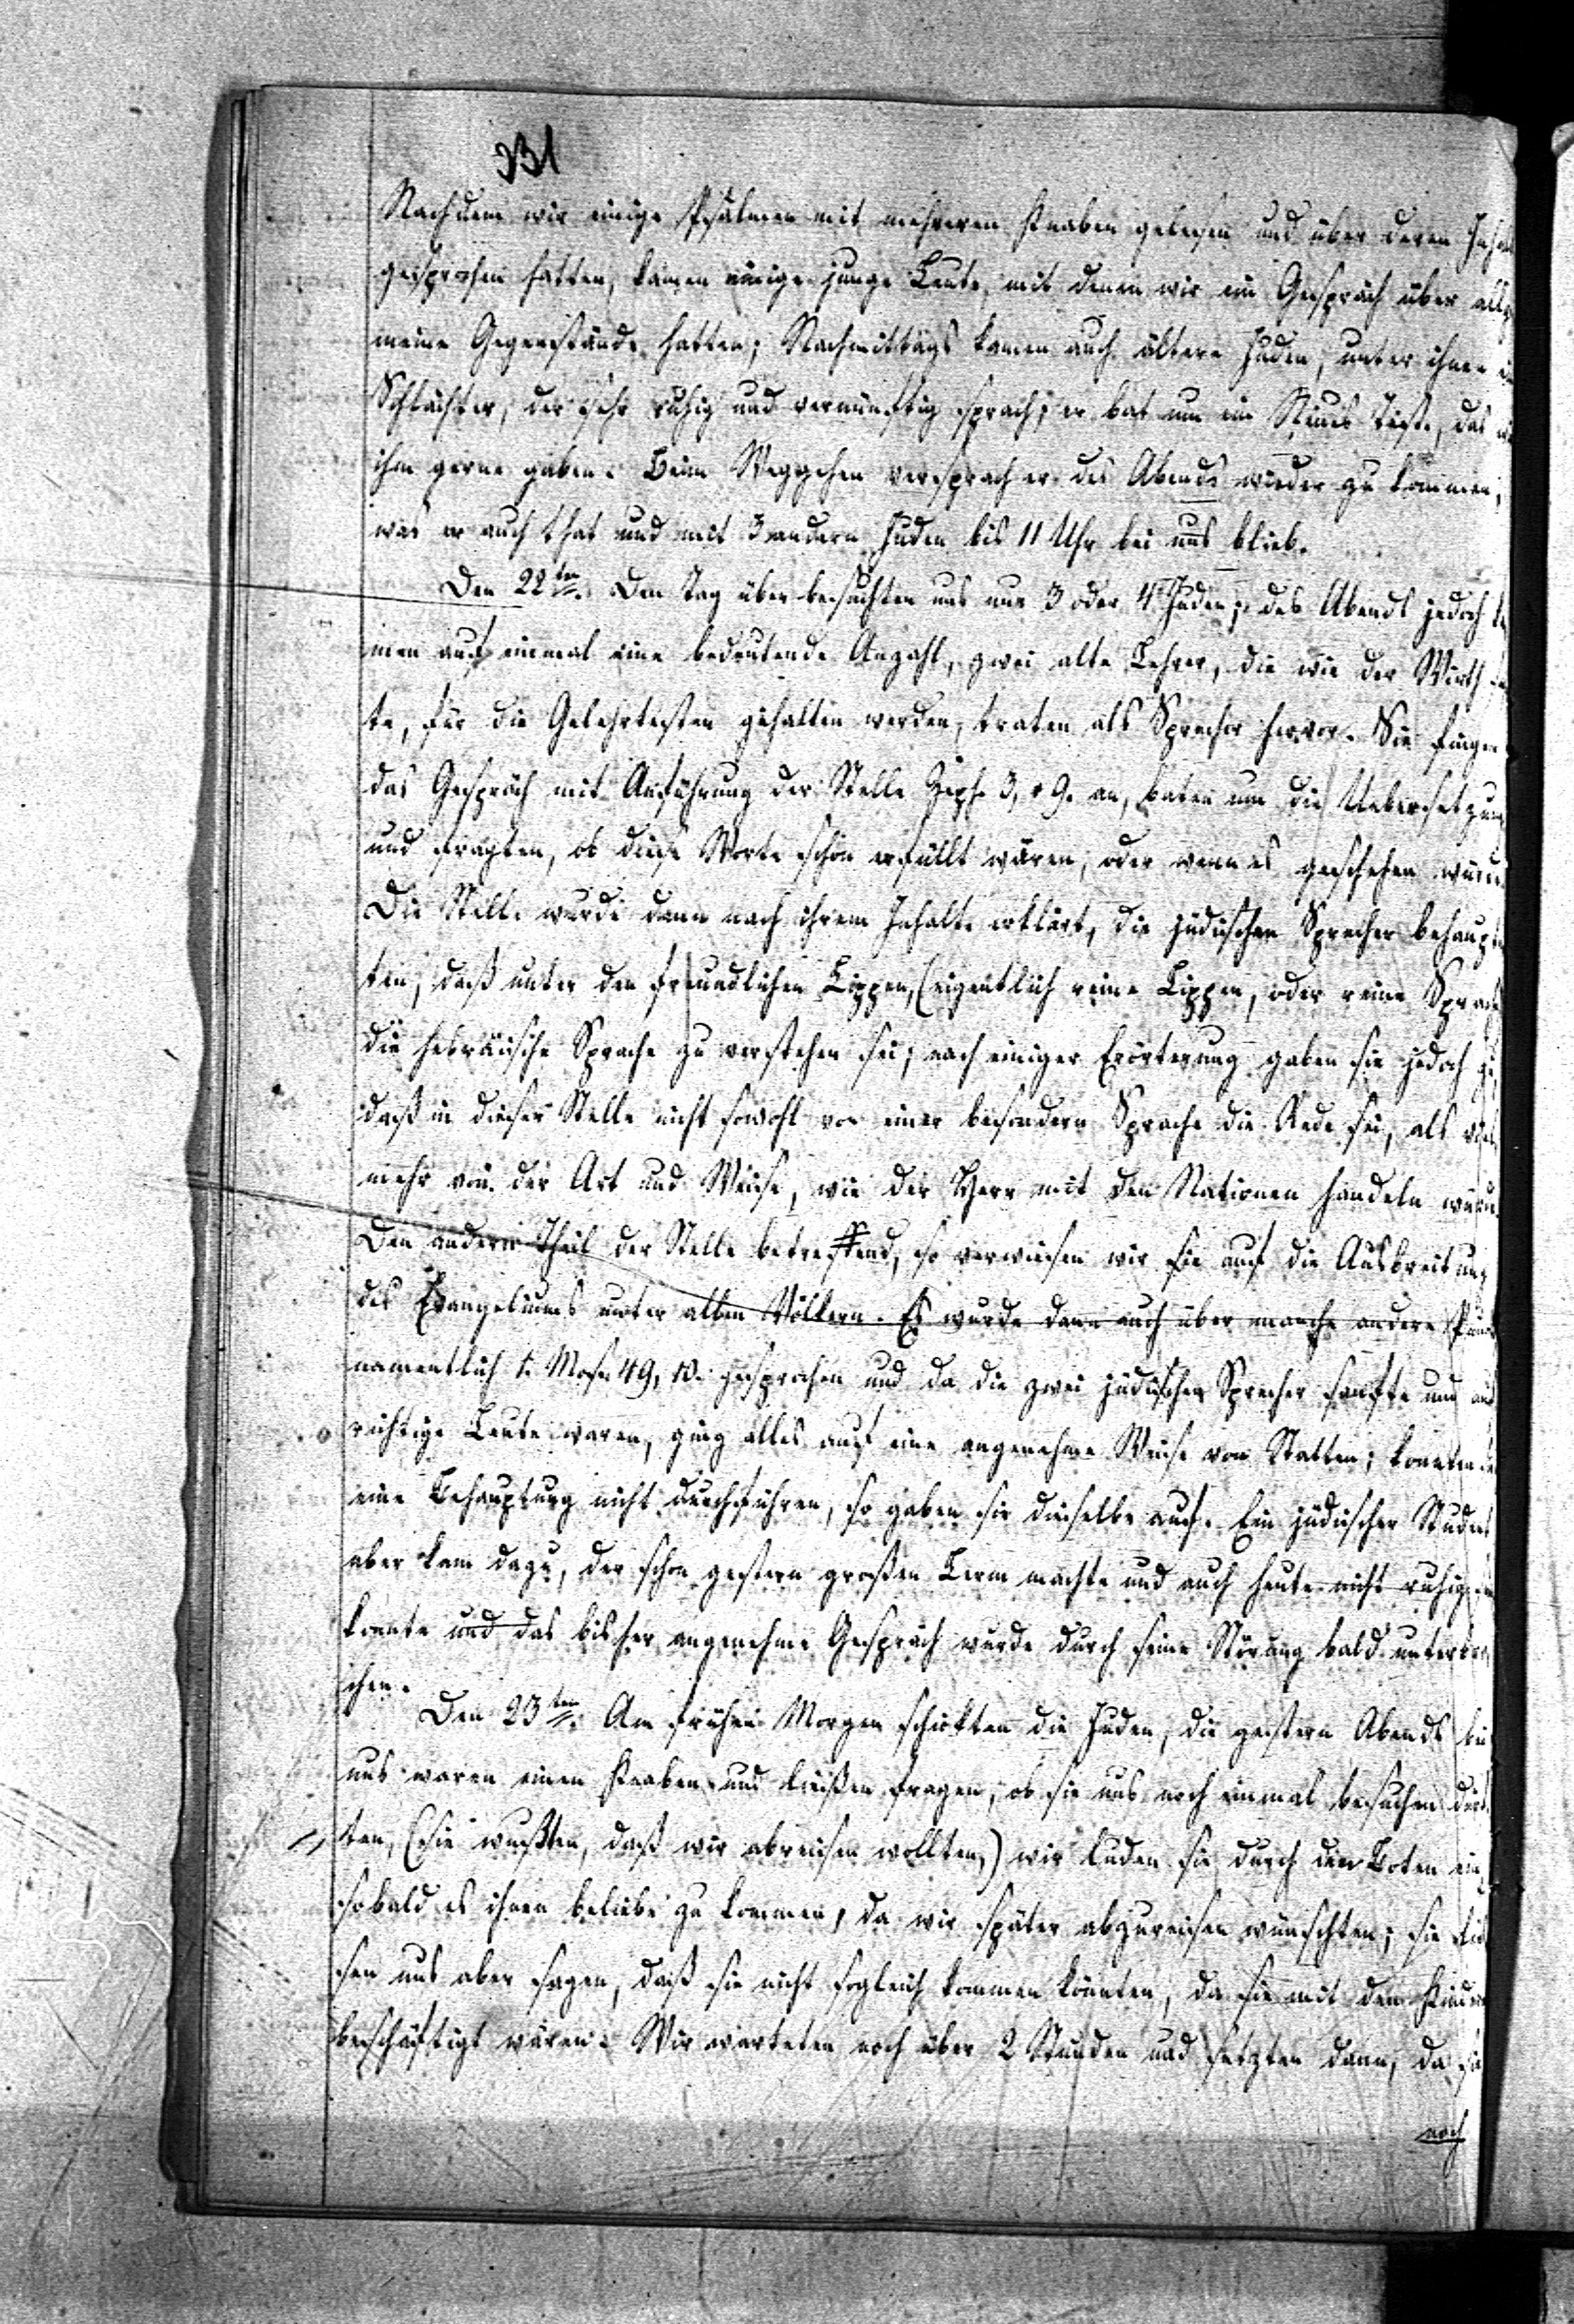 331
Nachdem wir einige Psalmen mit mehreren Knaben gelesen und über deren
gesprochen hatten, kamen einige junge Leute, mit denen wir ein Gespräch über allge
meine Gegenstände hatten; Nachmittags kamen auch ältere Juden, unter ihnen
Schlächter, der sehr ruhig und vernünftig sprach; er bat um ein Neues Test., das
ihm gerne gaben. Beim Weggehen versprach er des Abends wieder zu kommen;
was er auch that und mit 3 andern Juden bis 11 Uhr bei uns blieb.
Den 22ten. Den Tag über besuchten uns nur 3 oder 4 Juden; des Abends jedoch
men auf einmal eine bedeutende Anzahl, zwei alte Lehrer, die wie der Wirth
te, für die Gelehrtesten gehalten werden, traten als Sprecher hervor. Sie fingen
das Gespräch mit Anführung der Stelle Zeph. 3, v 9. an, baten um die Uebersetzung
und fragten, ob diese Worte schon erfüllt wären, oder wenn es geschehen würde
Die Stelle wurde dann nach ihrem Inhalte erklärt, die jüdischen Sprecher behaup
ten, daß unter den freundlichen Lippen, (eigentlich reine Lippen, oder reine Sprache
die hebräische Sprache zu verstehen sei; nach einiger Erörterung gaben sie jedoch zu,
daß in dieser Stelle nicht sowohl von einer besondern Sprache die Rede sei, als viel
mehr von der Art und Weise, wie der Herr mit den Nationen handeln würde.
Den andern Theil der Stelle betreffend, so verwiesen wir sie auf die Ausbreitung
des Evangeliums unter allen Völkern. Es wurde dann auch über manche andere
namentlich 1. Mos. 49, 10. gesprochen und da die zwei jüdischen Sprecher sanfte und auf
richtige Leute waren, ging alles auf eine angenehme Weise von Statten; konnten
eine Behauptung nicht durchführen, so gaben sie dieselbe auf. Ein jüdischer Student
aber kam dazu, der schon gestern großen Lerm machte und auch heute nicht ruhig
konnte und das bisher angenehme Gespräch wurde durch seine Störung bald unterbro
chen.
Den 23ten. Am frühen Morgen schickten die Juden, die gestern Abends bei
uns waren einen Knaben und ließen fragen, ob sie uns noch einmal besuchen dürf
ten, (sie wußten, daß wir abreisen wollten,) wir luden sie durch den Boten ein,
sobald es ihnen beliebe zu kommen, da wir später abzureisen wünschten; sie lie
sen uns aber sagen, daß sie nicht sogleich kommen könnten, da sie mit den Kindern
beschäftigt wären. Wir warteten noch über 2 Stunden und setzten dann, da sie
noch